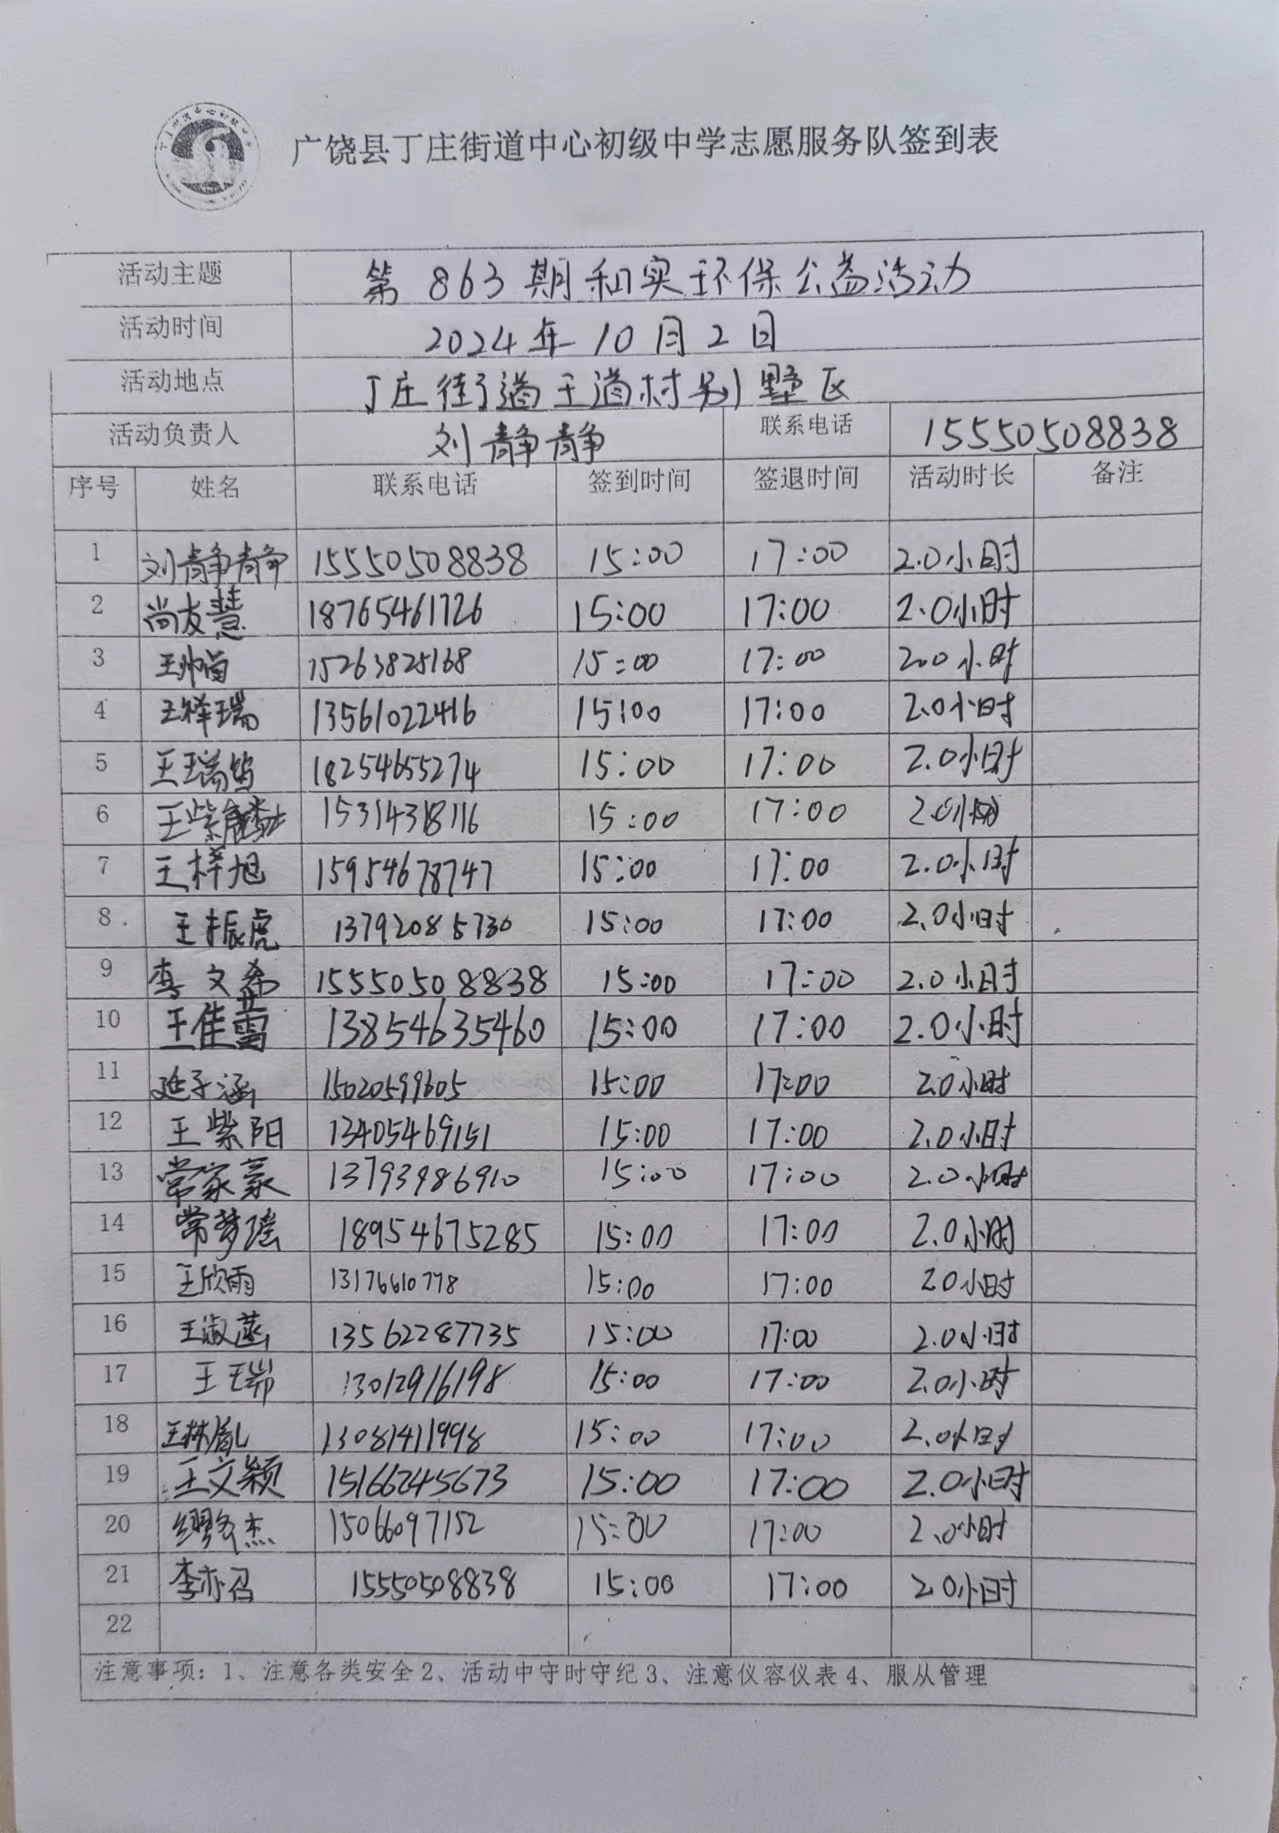 广饶县丁庄街道中心初级中学志愿服务队签到表
活动主题 第863期和实环保公益活动
活动时间 2024年10月2日
活动地点 丁庄街道王道村别墅区
活动负责人 刘静静 联系电话 15550508838
序号 姓名 联系电话 签到时间 签退时间 活动时长 备注
1 刘静静 15550508838 15:00 17:00 2.0小时
2 尚友慧 18765461726 15:00 17:00 2.0小时
3 15263825168 15:00 17:00 2.0小时
4 王梓瑞 13561022416 15:00 17:00 2.0小时
5 18254655274 15:00 17:00 2.0小时
6 15314318116 15:00 17:00 2.0小时
7 王梓旭 15954678747 15:00 17:00 2.0小时
8 王振虎 13792085730 15:00 17:00 2.0小时
9 李文希 15550508838 15:00 17:00 2.0小时
10 王佳蕾 13854635460 15:00 17:00 2.0小时
11 延子涵 15020599605 15:00 17:00 2.0小时
12 王紫阳 13405469151 15:00 17:00 2.0小时
13 常家豪 13793986910 15:00 17:00 2.0小时
14 常梦瑶 18954675285 15:00 17:00 2.0小时
15 王欣雨 13176610778 15:00 17:00 20小时
16 王淑菡 13562287735 15:00 17:00 2.0小时
17 王瑞 13012916198 15:00 17:00 2.0小时
18 13081411998 15:00 17:00 2.0小时
19 王文颖 15166245673 15:00 17:00 2.0小时
20 15066097152 15:00 17:00 2.0小时
21 李亦召 15550508838 15:00 17:00 20小时
22
注意事项：1、注意各类安全2、活动中守时守纪3、注意仪容仪表4、服从管理